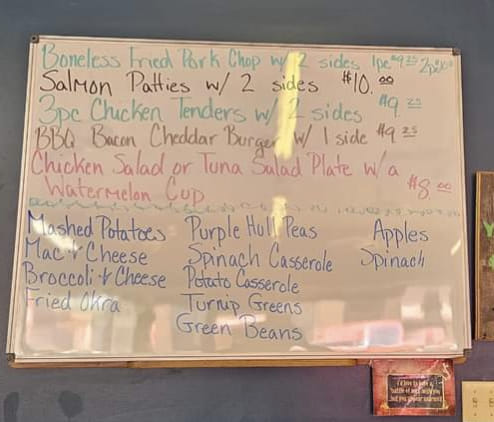 Boneless Fried Pork Chop w/ 2 sides 1pc $9.25 2pc
Salmon Patties w/ 2 sides $10.00
3pc Chicken Tenders w/ 2 sides $9.25
BBQ Bacon Cheddar Burger w/ 1 side $9.25
Chicken Salad or Tuna Salad Plate w/ a
Watermelon Cup $8.00
Mashed Potatoes Purple Hull Peas Apples
Mac & Cheese Spinach Casserole Spinach
Broccoli & Cheese Potato Casserole
Fried Okra Turnip Greens
Green Beans